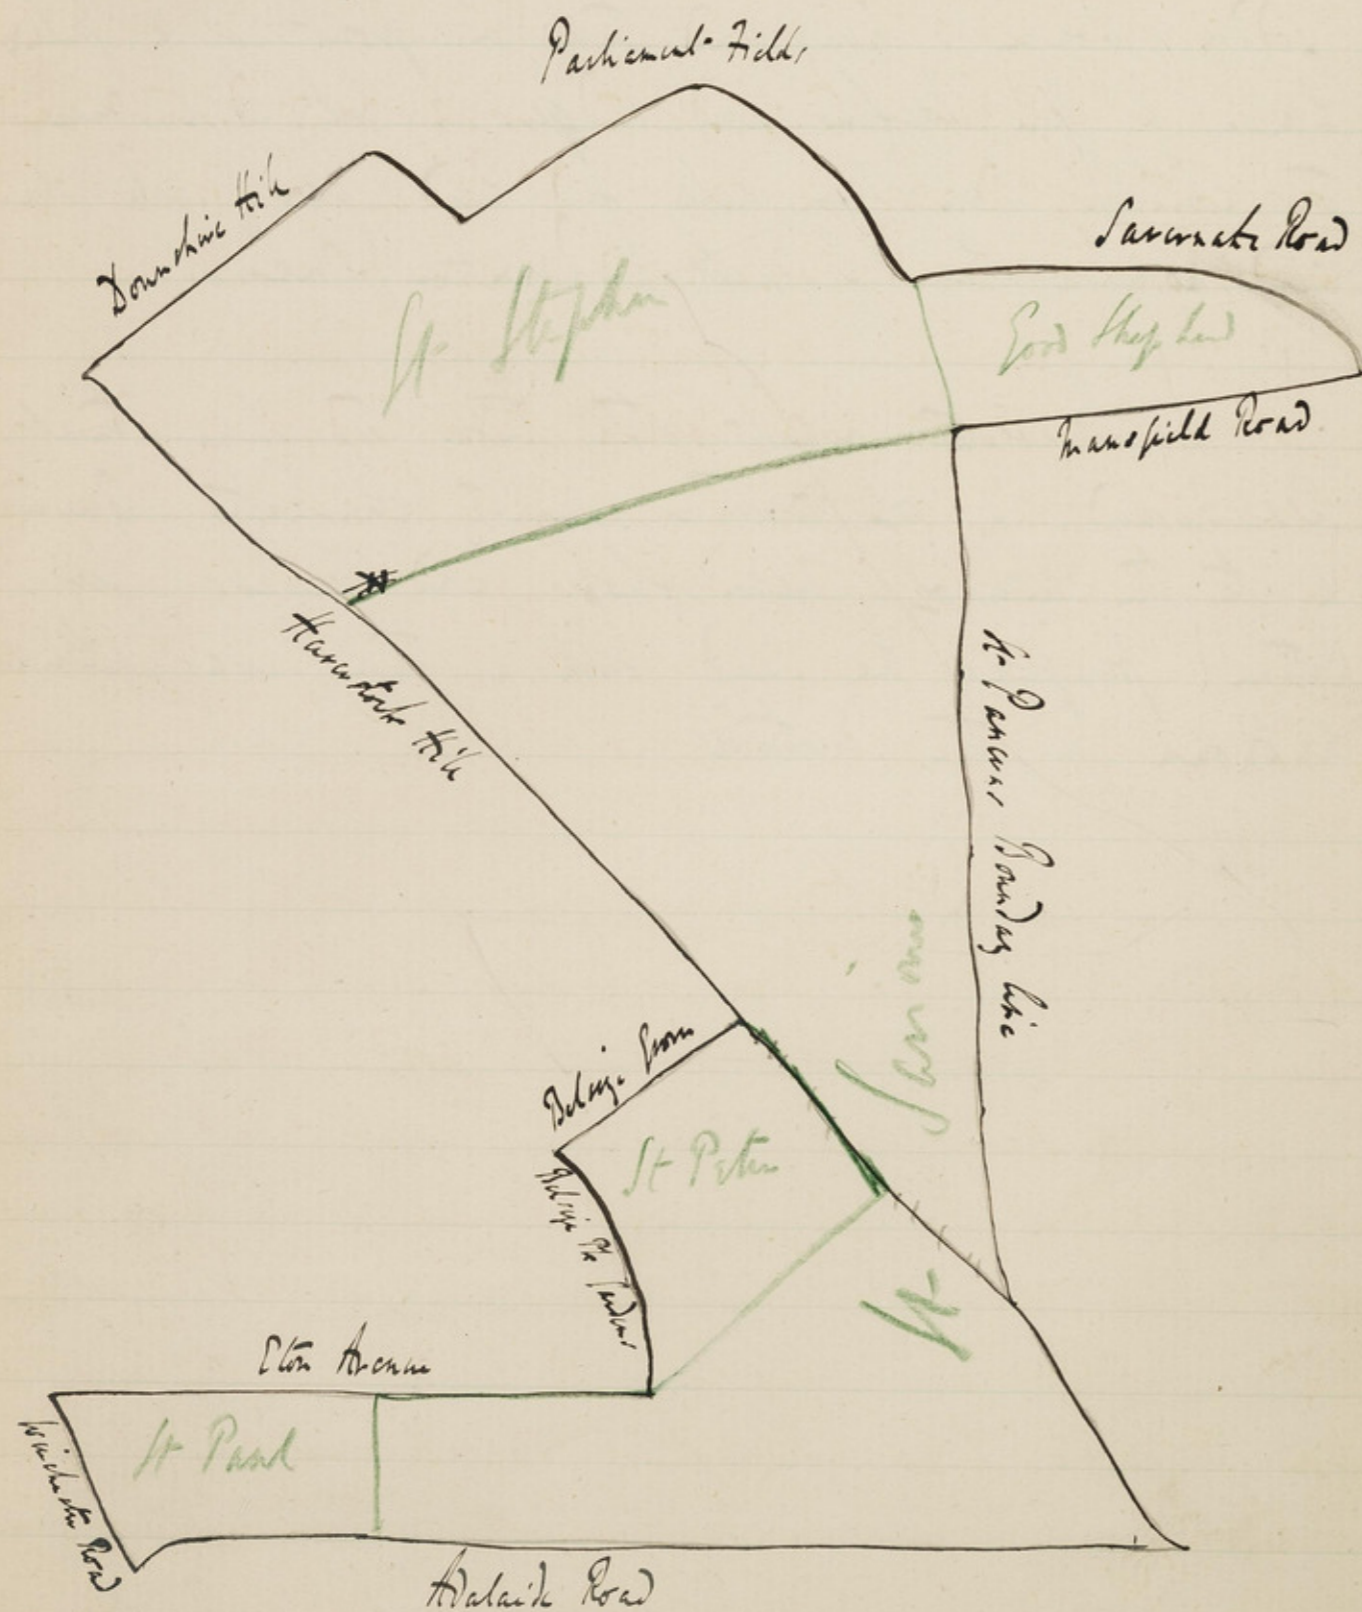 Parliament Fields
Downshire Hill
Savernake Road
St Stephen
Good Shepherd
Mansfield Road
Haverstock Hill
St Pancras Bounday line
Belsize Grove
St Peter
Belsize Pk Gardens
St
Eton Avenue
St Paul
Winchester Road
Adelaide Road